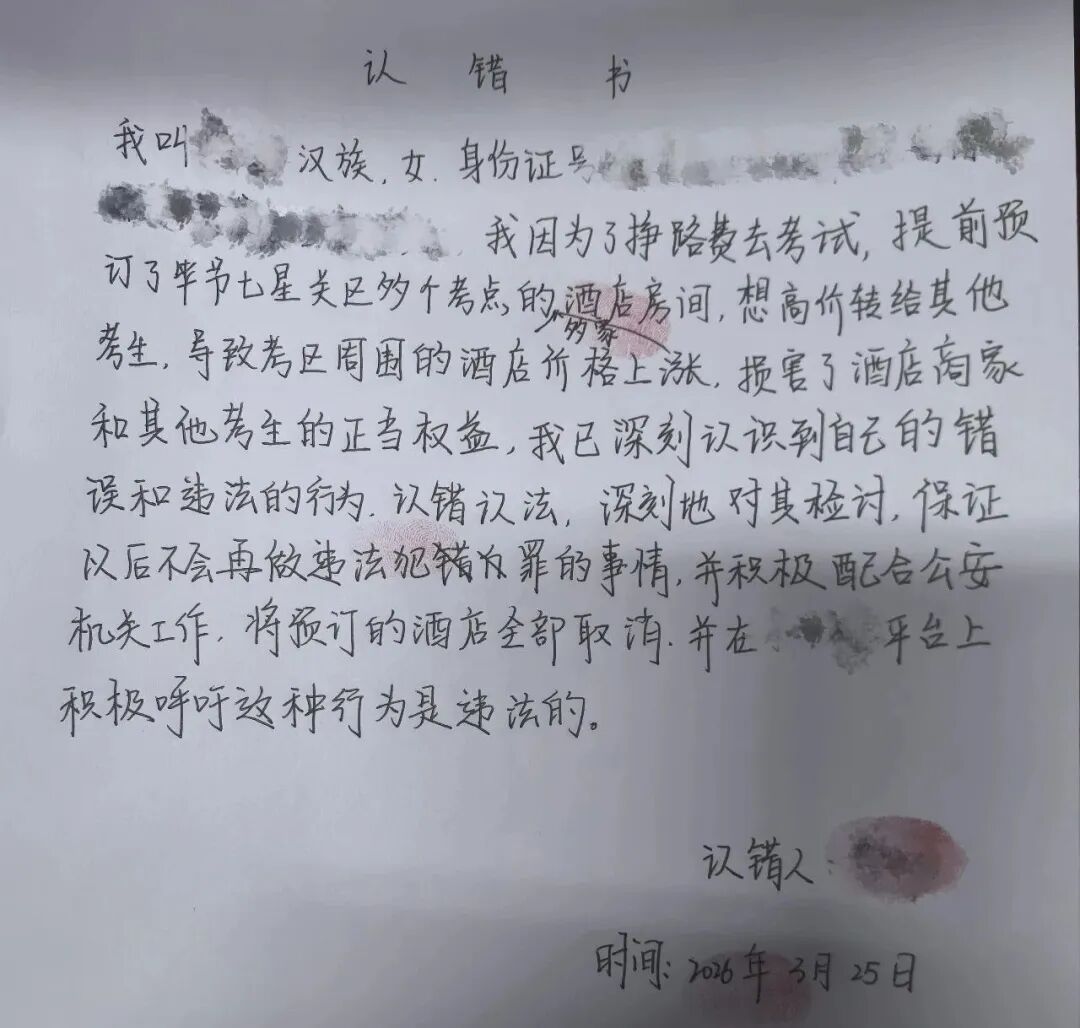 认 错 书
我叫 汉族，女，身份证号
我因为了挣路费去考试，提前预
订了毕节七星关区多个考点的多家酒店房间，想高价转给其他
考生，导致考区周围的酒店价格上涨，损害了酒店商家
和其他考生的正当权益，我已深刻认识到自己的错
误和违法的行为，认错认法，深刻地对其检讨，保证
以后不会再做违法犯罪的事情，并积极配合公安
机关工作，将预订的酒店全部取消，并在 平台上
积极呼吁这种行为是违法的。
认错人：
时间：2026年3月25日